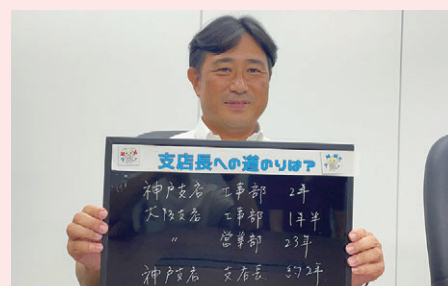 支店長への道のりは?
神戸支店 工事部 2年
大阪支店 工事部 1年半
〃 営業部 23年
神戸支店 支店長 約2年